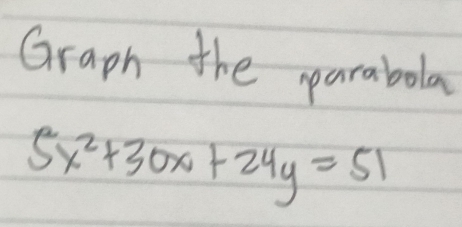 Graph the parabola
5x²+30x+24y=51